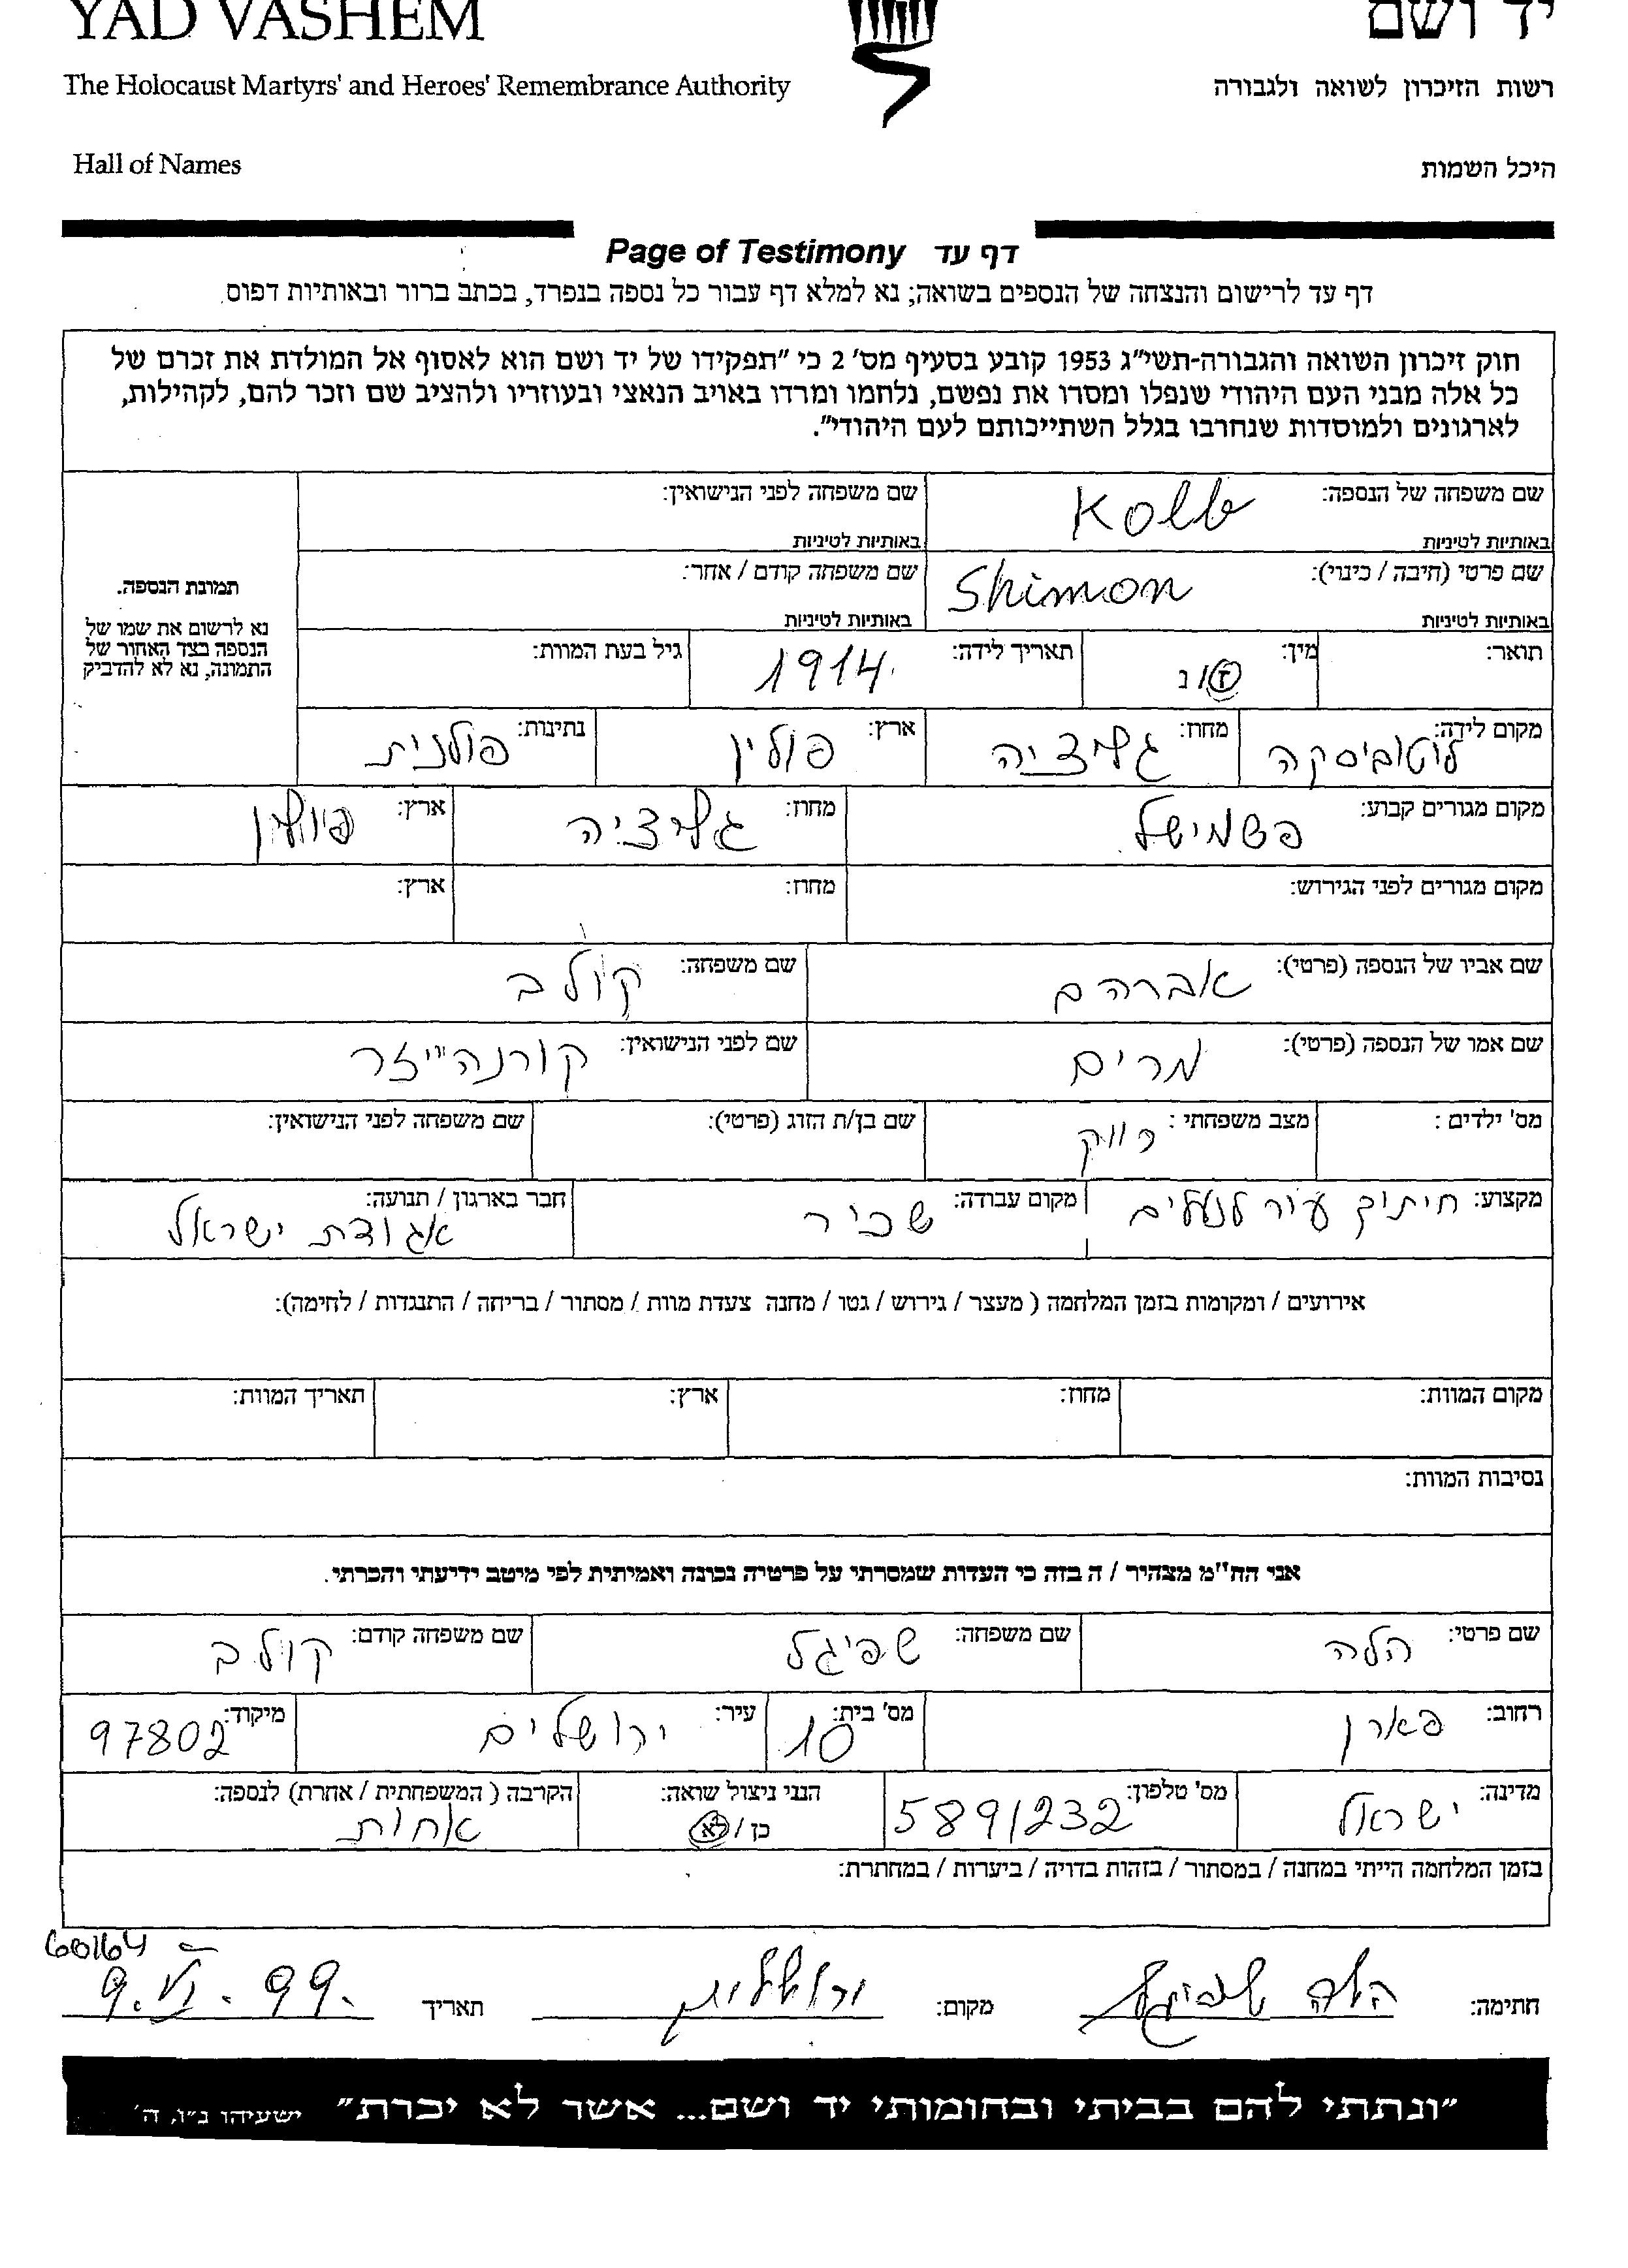 YAD VASHEM יד ושם
The Holocaust Martyrs' and Heroes' Remembrance Authority רשות הזיכרון לשואה ולגבורה
Hall of Names היכל השמות
Page of Testimony דף עד
דף עד לרישום והנצחה של הנספים בשואה; נא למלא דף עבור כל נספה בנפרד, בכתב ברור ובאותיות דפוס.
חוק זיכרון השואה והגבורה-תשי"ג 1953 קובע בסעיף מס' 2 כי "תפקידו של יד ושם הוא לאסוף אל המולדת את זכרם של
כל אלה מבני העם היהודי שנפלו ומסרו את נפשם, נלחמו ומרדו באויב הנאצי ובעוזריו ולהציב שם וזכר להם, לקהילות,
לארגונים ולמוסדות שנחרבו בגלל השתייכותם לעם היהודי".
שם משפחה של הנספה: Kolb שם משפחה לפני הנישואין:
באותיות לטיניות באותיות לטיניות
שם פרטי (חיבה / כינוי): Shimon שם משפחה קודם / אחר:
באותיות לטיניות באותיות לטיניות
תמונת הנספה.
נא לרשום את שמו של
הנספה בצד האחור של
התמונה, נא לא להדביק
תואר: מין: ז / נ תאריך לידה: 1914 גיל בעת המוות:
מקום לידה: לוטוביסקה מחוז: גליציה ארץ: פולין נתינות: פולנית
מקום מגורים קבוע: פשמישל מחוז: גליציה ארץ: פולין
מקום מגורים לפני הגירוש: מחוז: ארץ:
שם אביו של הנספה (פרטי): אברהם שם משפחה: קולב
שם אמו של הנספה (פרטי): מרים שם לפני הנישואין: קורנהייזר
מס' ילדים : מצב משפחתי : רווק שם בן/ת הזוג (פרטי): שם משפחה לפני הנישואין:
מקצוע: חיתוך עור לנעלים מקום עבודה: שכיר חבר בארגון / תנועה: אגודת ישראל
אירועים / ומקומות בזמן המלחמה ( מעצר / גירוש / גטו / מחנה צעדת מוות / מסתור / בריחה / התנגדות / לחימה):
מקום המוות: מחוז: ארץ: תאריך המוות:
נסיבות המוות:
אני הח"מ מצהיר / ה בזה כי העדות שמסרתי על פרטיה נכונה ואמיתית לפי מיטב ידיעתי והכרתי.
שם פרטי: הלה שם משפחה: שפיגל שם משפחה קודם: קולב
רחוב: פארן מס' בית: 10 עיר: ירושלים מיקוד: 97802
מדינה: ישראל מס' טלפון: 5891232 הנני ניצול שואה: כן / לא הקרבה ( המשפחתית / אחרת) לנספה: אחות
בזמן המלחמה הייתי במחנה / במסתור / בזהות בדויה / ביערות / במחתרת:
חתימה: הלה שפיגל מקום: ירושלים תאריך 9.VI.99.
"ונתתי להם בביתי ובחומותי יד ושם... אשר לא יכרת" ישעיהו נ"ו, ה'